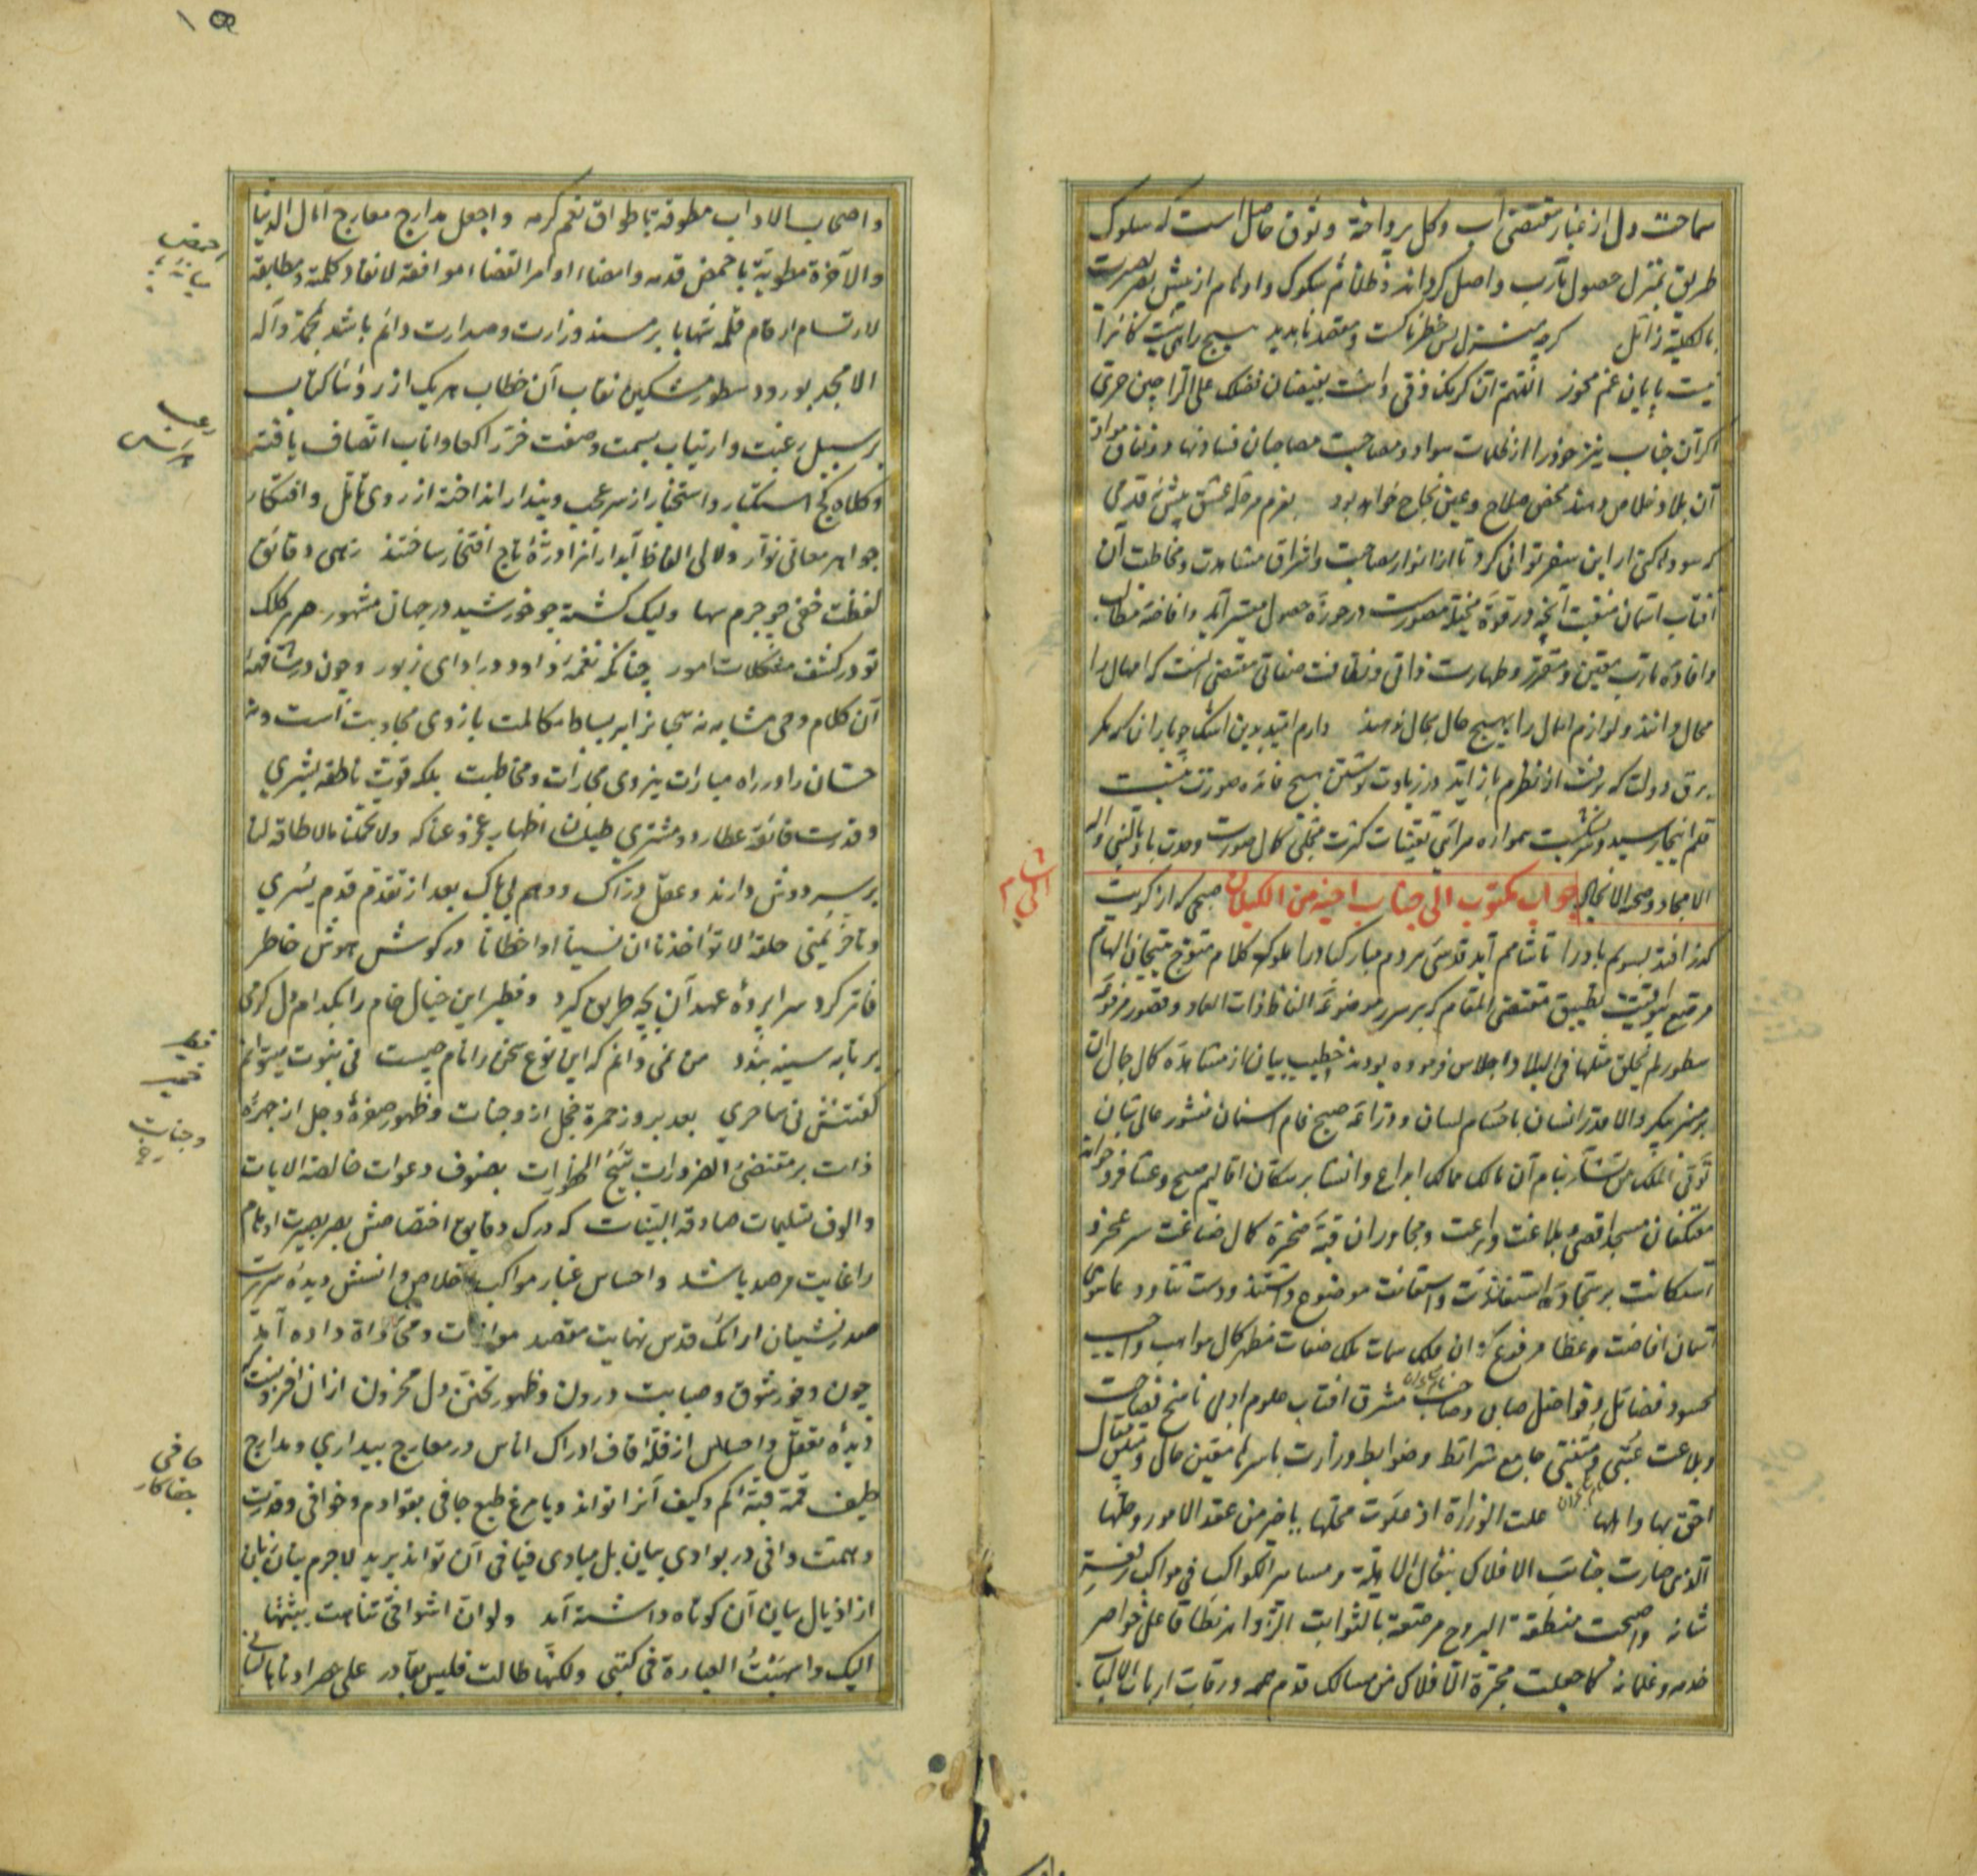 ساحت دل از غبار مقتضی آب و گل پرداخته و ذوق حاصل است که سلوک
طریق بمنزل حصول مآرب واصل گرداند و ظلائم شکوک و اوهام از پیش بصر بصیرت
بالکلیه زائل گرچه منزل بس خطرناکست و مقصد ناپدید هیچ راهی نیست کانرا
نیست پایان غم مخور اللهم
اکر آن جناب نیز خود را از ظلمات سواد و مصاحبت مصاحبان فساد نهاد و نفاق مواد
آن بلاد خلاص دهند محض صلاح و عین نجاح خواهد بود بعزم مرحله عشق پیش نه قدمی
که سودها کنی ار این سفر توانی کرد تا از انوار مصاحبت و اشراق مشاهدت و مخاطبت آن
آفتاب آسمان منقبت آنچه در قوه مخیله متصورست در حوزه حصول میسر آید و افاضه مطالب
و افاده مآرب معین و مقرر و طهارت ذاتی و نظافت صفاتی مقتضی آنست که امهال را
محال دانند و لوازم اهمال را بهیچ حال مجال ندهند دارم امید بدین اشک چو باران که مگر
برق دولت که برفت از نظرم بازآید در زیادت نوشتن هیچ فائده صورت نبست
قلم اینجا رسید و سر بشکست همواره مرائی تعینات کثرت مجلی کمال صورت وحدت باد بالنبی وآله
الامجاد وصحبه الانجاد جواب مکتوب الی جناب اخیه من الکیلان صبحی که از کویت
گذر افتد بسویم باد را تا شامم آید قدسی مردم مبارکباد را ملوک کلام متوج بتیجان الهام
مرقع بیواقیت تطبیق مقتضی المقام که بر سرر موضوعه الفاظ ذات العماد و قصور مرفوعه
سطور لم یخلق مثلها فی البلاد اجلاس فرموده بودند خطیب بیان از مشاهده کمال جمال آن
بر منبر پیکر والا قدر انسان با حسام لسان و دراعه صبح فام اسنان منشور عالی تبیان
تؤتی الملک من تشاء بنام آن مالک ممالک ابداع و انشا بر سکان اقالیم صبح و عشا فرو خواند
معتکفان مسجد اقصی بلاغت و براعت و مجاوران قبه صخره کمال صناعت سر عجز و
استکانت بر سجاده استفاضت و استعانت موضوع داشتند و دست
آسمان افاضت و عطا مرفوع که آن فلک سمات ملک صفات مظهر کمال مواهب واهب
محسود فضائل و فواضل صابی و صاحب مشرق آفتاب علوم ادبی ناسخ فصاحت
و بلاغت عتبی و عتیبی جامع شرائط و ضوابط وزارت باسرها متعین حال و متلبس مقال
احق بها و اهلها علت الوزارة اذ علوت محلها یا خیر من عقد الامور وحلها
الذی صارت جنائب الافلاک بنعال الاهلة ومسامیر الکواکب فی مواکب رفعة
شانه واصبحت منطقة البروج مرصعة بالثوابت الزواهر نطاقا علی خواصر
خدمه وغلمانه کما جعلت مجرة الافلاک من مسالک قدوم همه ورقاب ارباب الالباب
واصحاب الاداب مطوقة باطواق نعم کرمه واجعل مدارج معارج آمال الدنیا
والآخرة مطویة باخمص قدمه وامضاء اوامر القضاء موافقة لانفاذ کلمه ومطابقة
لارتسام ارقام قلمه شهابا بر مسند وزارت و صدارت دائم باشد بمحمد وآله
الامجد بورود سطور مشکین نقاب آن خطاب هر یک از رؤسا کتاب
بر سبیل رغبت و ارتیاب بسمت و صفت خر راکعا واناب اتصاف یافتند
و کلاه کج استکبار و استخبار از سر عجب و پندار انداخته از روی تأمل و افتکار
جواهر معانی نوار و لآلی الفاظ آبدار آنرا درة التاج افتخار ساختند زهی دقائق
لفظت خفی چو جرم سها ولیک گشته چو خورشید در جهان مشهور صریر کلک
تو در کشف مشکلات امور چنانکه نغمه داود در ادای زبور و چون درشأن
آن کلام وحی مشابه نه سحبانرا بر بساط مکالمت بازوی مجاوبت است و نه
حسان را در راه مبارات نیروی مجارات و مخاطبت بلکه قوت ناطقه بشری
و قدرت فائقه عطارد و مشتری طیلسان اظهار عجز و عنا که ولا تحملنا ما لا طاقة لنا
بر سر دوش دارند و عقل دراک و وهم بی باک بعد از تقدم قدم یسری
و تأخر یمنی حلقه لا تؤاخذنا ان نسینا او اخطأنا در گوش هوش خاطر
فاتر کرد سراپرده عهد آن بچه طریق گردد و فطیر این خیال خام را بکدام دل گرمی
بر تابه سینه بندد من نمی دانم که این نوع سخن را نام چیست نی نبوت میتوانم
گفتنش نی ساحری بعد بروز حمرة خجل از وجنات و ظهور صفرة وجل از چهره
ذات بر مقتضی الضرورات تبیح المحظورات بصنوف دعوات خالصة الآیات
و الوف تسلیمات صادقة البینات که درک دقایق اختصاصش بصر بصیرت اوهام
را غایت مرصد باشد و احساس غبار مواکب اخلاص و انسش دیده سریرت
صدرنشینان ارائک قدس نهایت مقصد موازات و محاذاة داده آید
چون وفور شوق و صبابت درون و ظهور تحنن دل محزون از آن افزونست که
دیده تعقل و احساس از قله قاف ادراک اناس در معارج بیداری و مدارج
طیف قمه قبه کم و کیف آنرا تواند دید یا مرغ طبع جافی بقوادم و خوافی و قدرت
و همت وافی در بوادی بیان بل مبادی فیافی آن تواند پرید لاجرم بنان بیان
از اذیال بیان آن کوتاه داشته آمد ولو ان اشواقی تناهت بثثتها
الیک واسهبت العبارة فی کتبی ولکنها طالت فلیس بقادر علی حصر ادناها لسانی
اخمص
رعب
فطیر
خمیر
وجنات
جافی
جفاکار
١٥